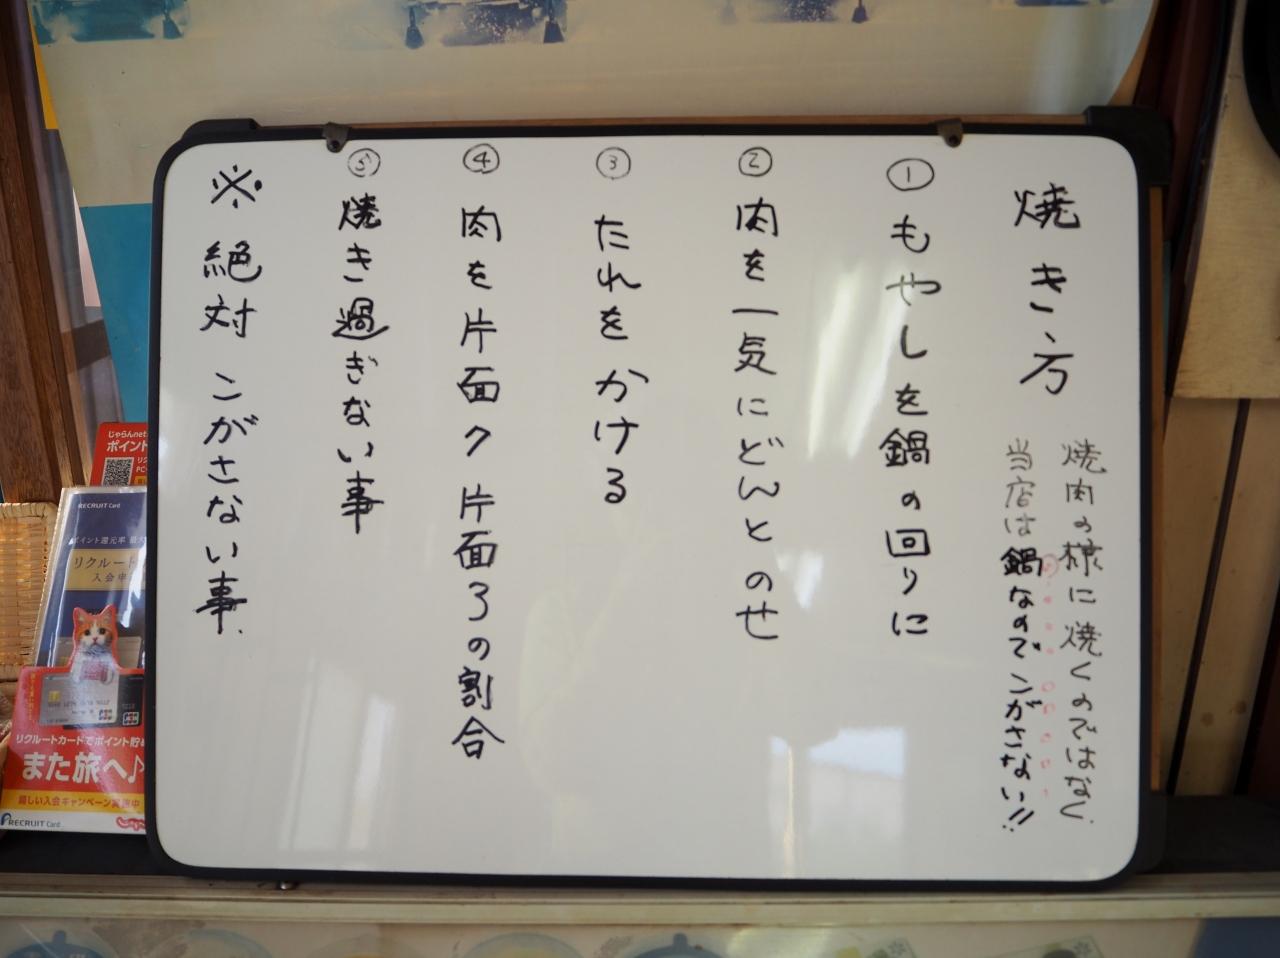 焼き方
焼肉の様に焼くのではなく
当店は鍋なのでこがさない!!
① もやしを鍋の回りに
② 肉を一気にどんとのせ
③ たれをかける
④ 肉を片面7片面3の割合
⑤ 焼き過ぎない事
※ 絶対こがさない事.
じゃらんnet
ポイント
RECRUIT Card
ポイント還元率
リクルート
リクルートカードでポイント貯め
また旅へ♪
嬉しい入会キャンペーン実施中
RECRUIT Card